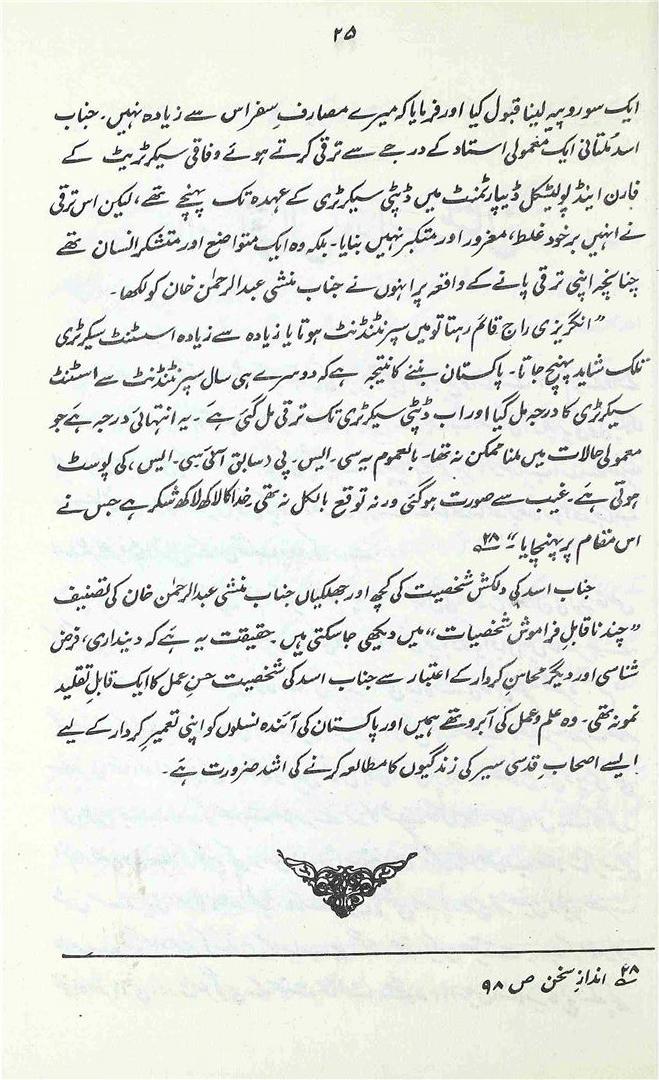 ۲۵
ایک سو روپیہ لینا قبول کیا اور فرمایا کہ میرے مصارفِ سفر اس سے زیادہ نہیں۔ جناب
اسد مُلتانی ایک معمولی استاد کے درجے سے ترقی کرتے ہوئے وفاقی سیکرٹریٹ کے
فارن اینڈ پولیٹکل ڈیپارٹمنٹ میں ڈپٹی سیکرٹری کے عہدہ تک پہنچے تھے، لیکن اس ترقی
نے انہیں برخود غلط، مغرور اور متکبر نہیں بنایا۔ بلکہ وہ ایک متواضع اور متشکر انسان تھے
چنانچہ اپنی ترقی پانے کے واقعہ پر انہوں نے جناب منشی عبدالرحمٰن خان کو لکھا۔
”انگریزی راج قائم رہتا تو میں سپرنٹنڈنٹ ہوتا یا زیادہ سے زیادہ اسسٹنٹ سیکرٹری
تلک شاید پہنچ جاتا۔ پاکستان بننے کا نتیجہ ہے کہ دوسرے ہی سال سپرنٹنڈنٹ سے اسٹنٹ
سیکرٹری کا درجہ مل گیا اور اب ڈپٹی سیکرٹری تک ترقی مل گئی ہے۔ یہ انتہائی درجہ ہے جو
معمولی حالات میں ملنا ممکن نہ تھا۔ بالعموم یہ سی۔ ایس۔ پی (سابق آئی سی۔ ایس، کی پوسٹ
ہوتی ہے۔ غیب سے صورت ہو گئی ورنہ توقع بالکل نہ تھی۔ خدا کا لاکھ لاکھ شکر ہے جس نے
اس مقام پر پہنچایا“ ۲۸
جناب اسد کی دلکش شخصیت کی کچھ اور جھلکیاں جناب منشی عبدالرحمٰن خان کی تصنیف
”چند ناقابلِ فراموش شخصیات“ میں دیکھی جا سکتی ہیں۔ حقیقت یہ ہے کہ دینداری، فرض
شناسی اور دیگر محاسنِ کردار کے اعتبار سے جناب اسد کی شخصیت حسنِ عمل کا ایک قابلِ تقلید
نمونہ تھی۔ وہ علم و عمل کی آبرو تھے ہمیں اور پاکستان کی آئندہ نسلوں کو اپنی تعمیرِ کردار کے لیے
ایسے اصحابِ قدسی سیر کی زندگیوں کا مطالعہ کرنے کی اشد ضرورت ہے۔
۲۸ اندازِ سخن ص ۹۸